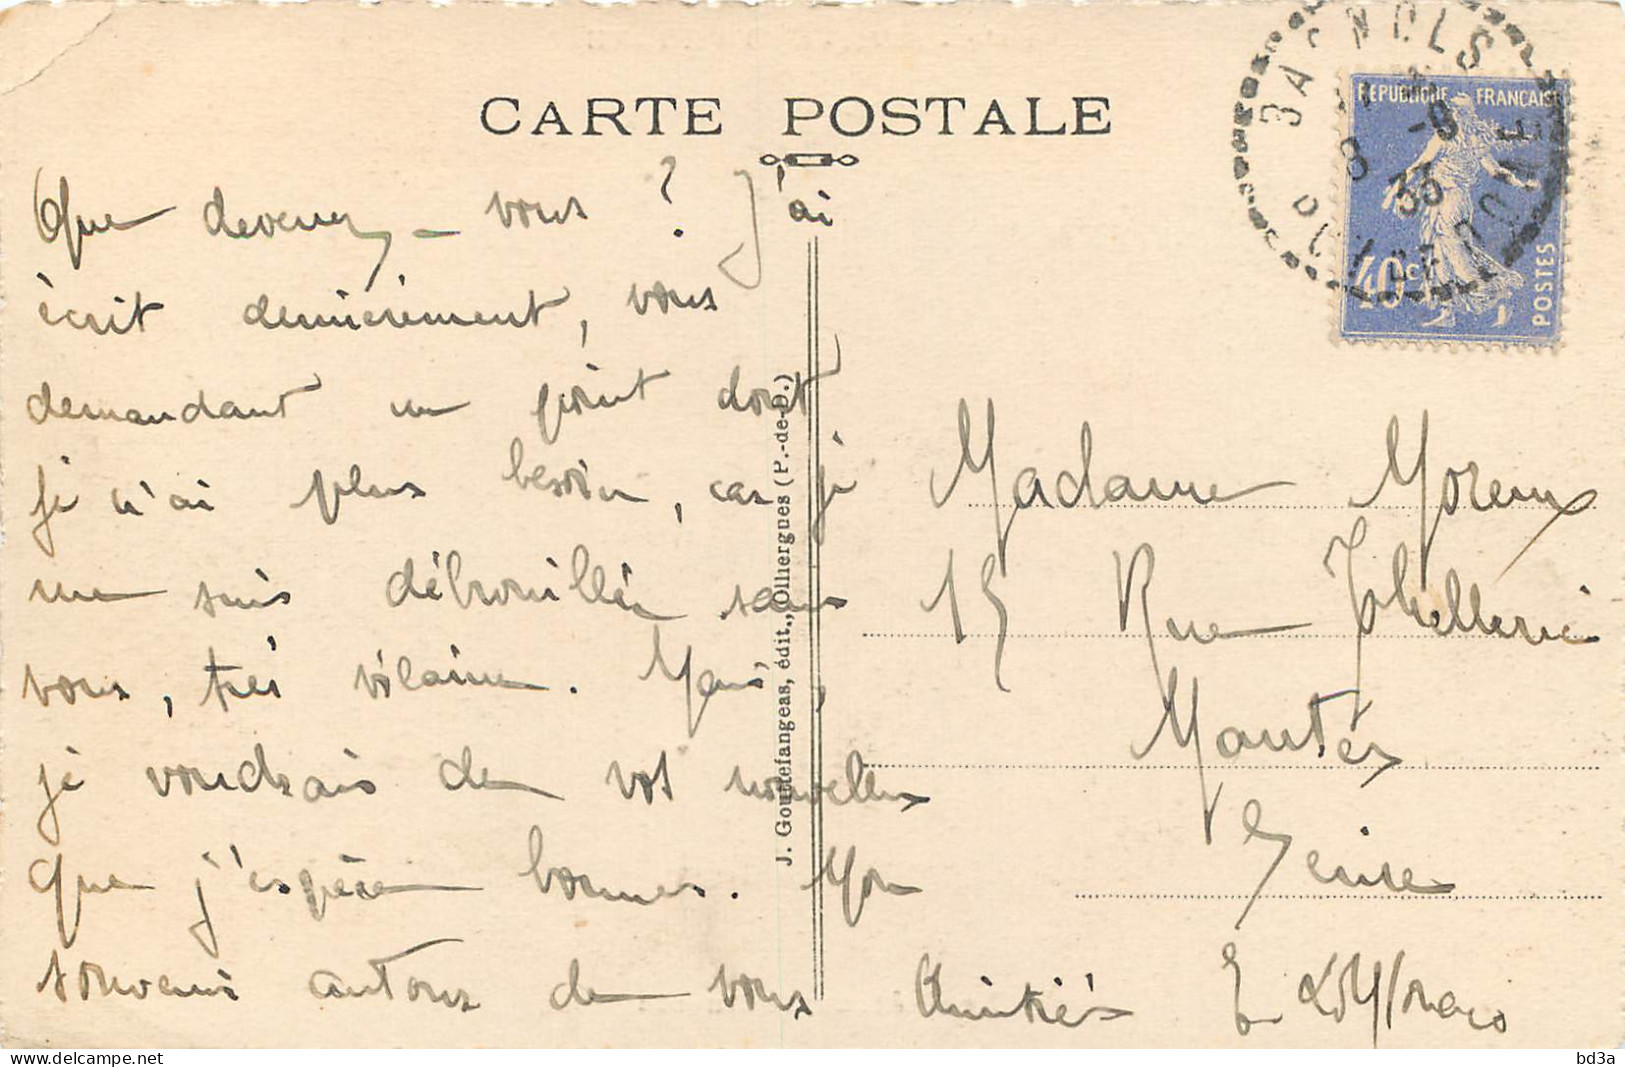 CARTE POSTALE
Que devenez-vous ? J'ai
écrit dernièrement, vous
demandant un point dont
je n'ai plus besoin, car je
me suis débrouillée sans
vous, très vilaine. Mais,
je voudrais de vos nouvelles
que j'espère bonnes. Mon
souvenir autour de vous
Amitiés
J. Gouttefangeas, édit., Olliergues (P.-de-D.)
BAGNOLS
PUY DE DOME
8 -8
35
REPUBLIQUE FRANCAISE
40c
POSTES
Madame Moreux
15 Rue Thellerie
Mantes
Seine
bd3a
www.delcampe.net